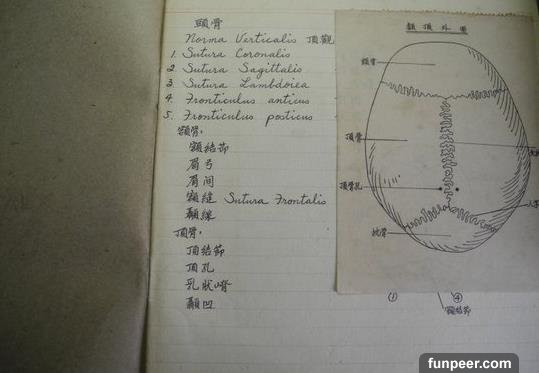 頭骨
Norma Verticalis 頂觀
1. Sutura Coronalis
2. Sutura Sagittalis
3. Sutura Lambdoiea
4. Fronticulus anticus
5. Fronticulus posticus
額骨:
額結節
眉弓
眉间
額縫 Sutura Frontalis
顳線
頂骨:
頂結節
頂孔
乳狀嵴
顳凹
顱頂外面
額骨
頂骨
頂骨孔
枕骨
① ④
額結節
funpeer.com